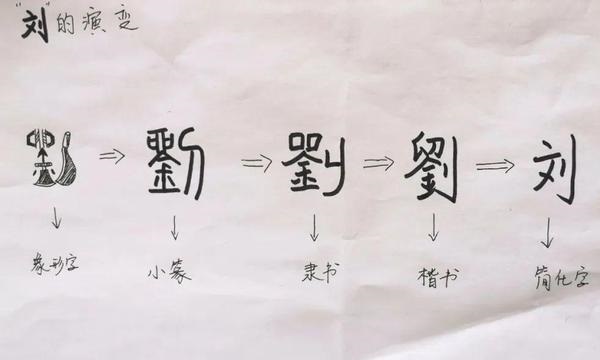 "刘"的演变
⇒ 劉 ⇒ 劉 ⇒ 劉 ⇒ 刘
↓ ↓ ↓ ↓ ↓
象形字 小篆 隶书 楷书 简化字